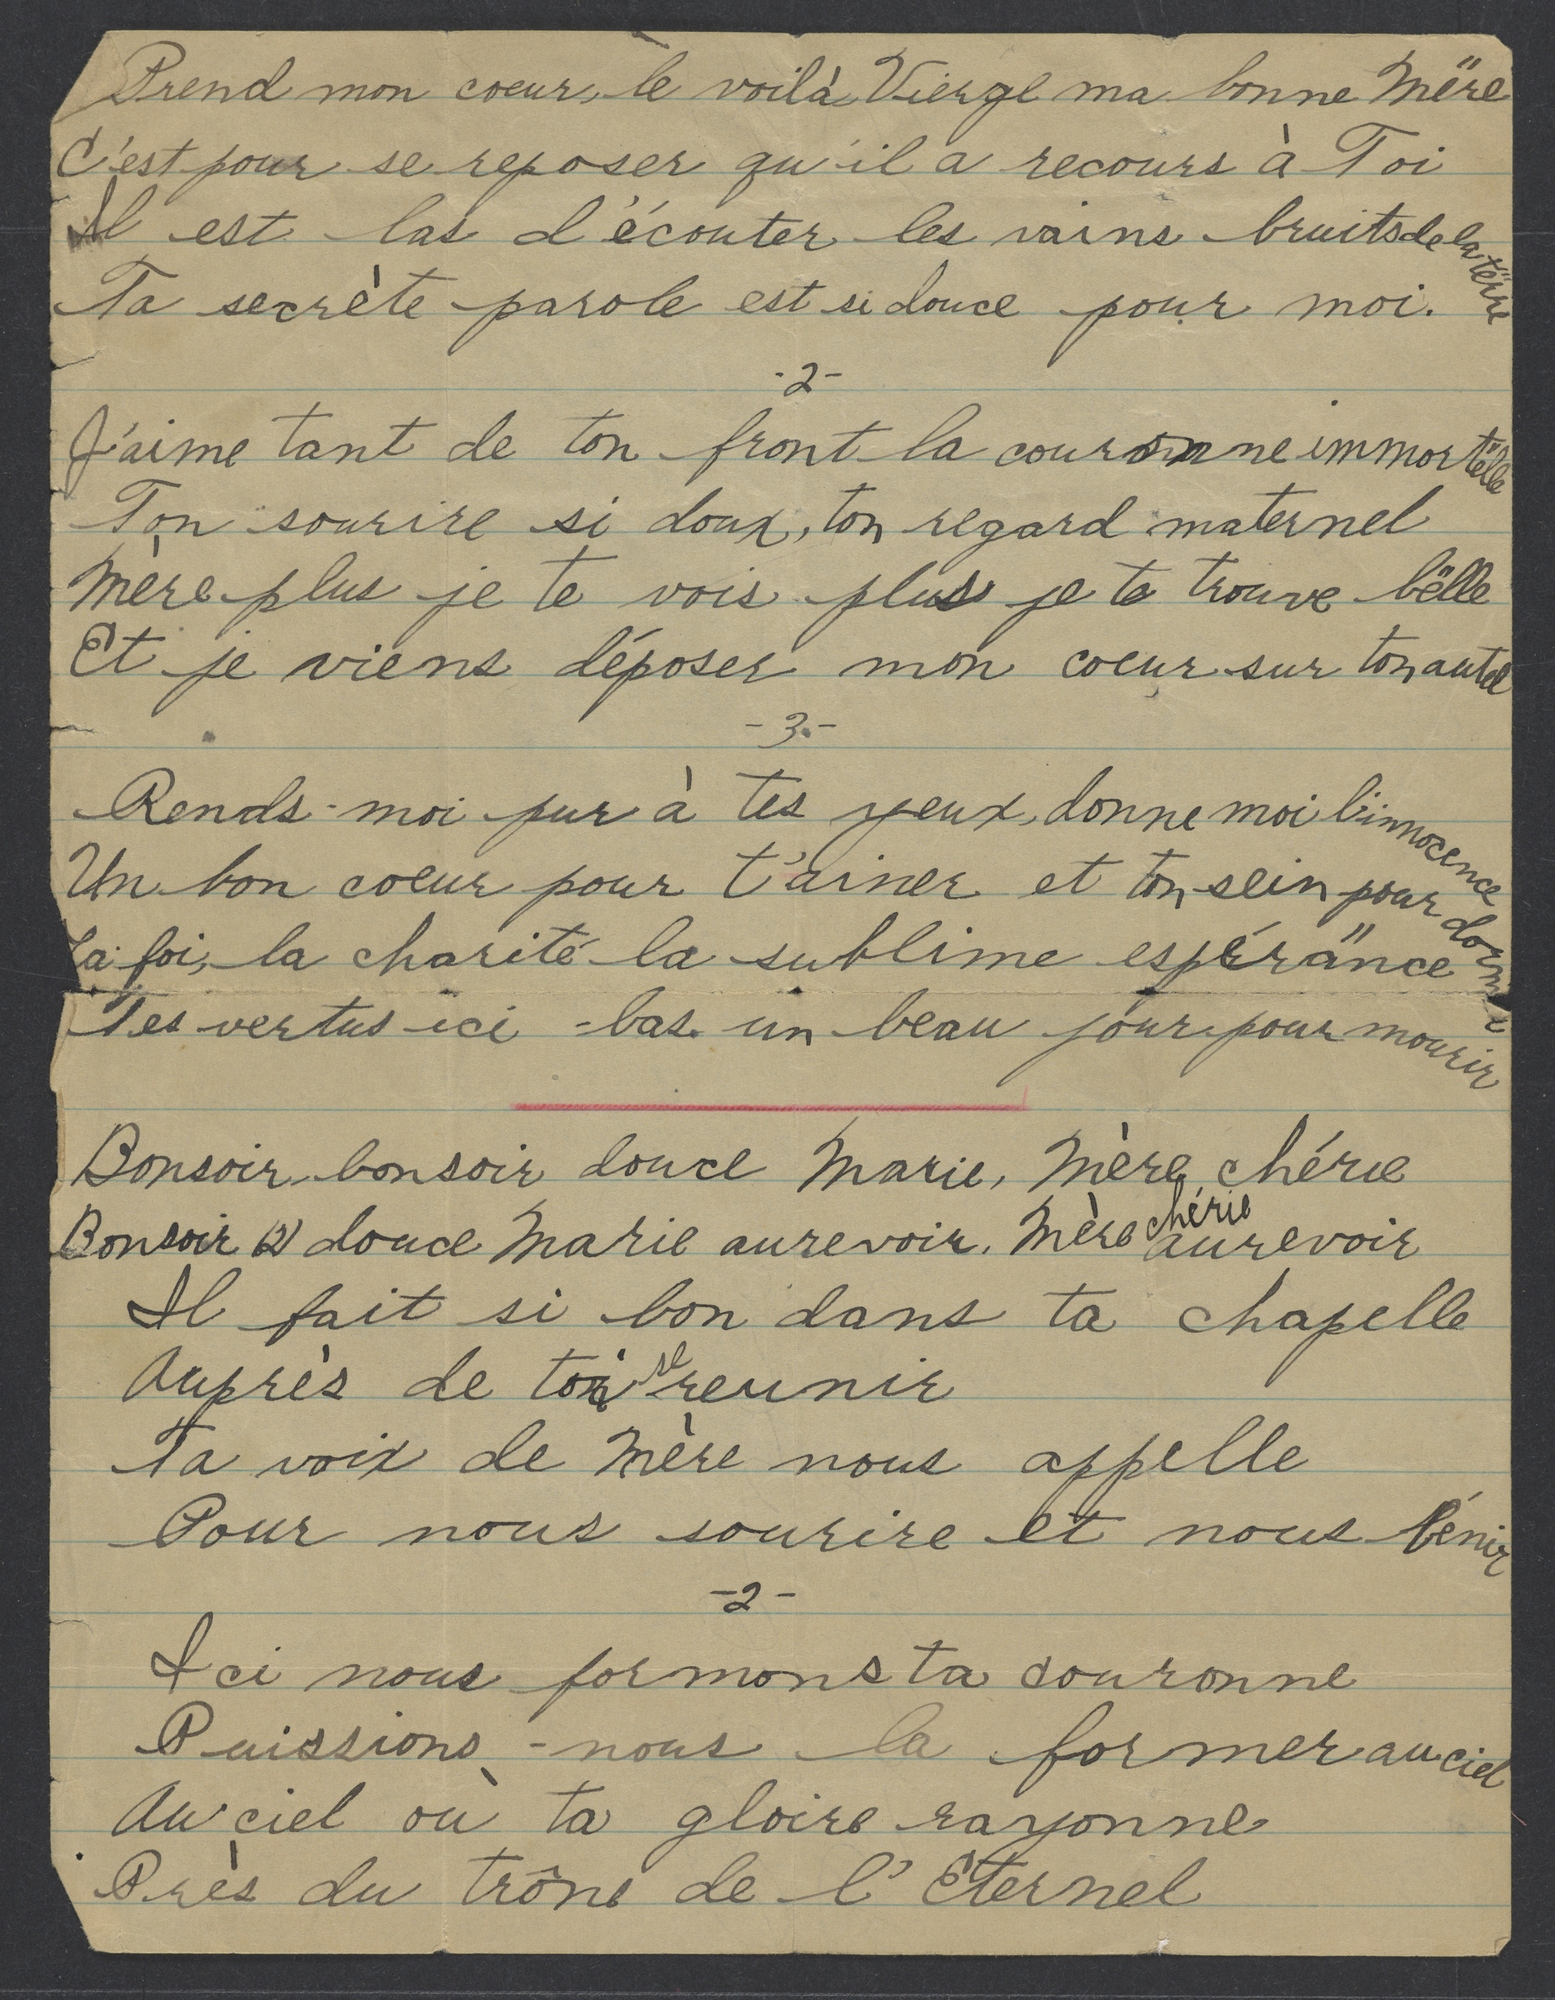 Prend mon coeur, le voilà, Vierge ma bonne Mëre
C'est pour se reposer qu'il a recours à Toi
Il est las d'écouter les vains bruits de la tërre
Ta secrète parole est si douce pour moi.
-2-
J'aime tant de ton front la couronne immortëlle
Ton sourire si doux, ton regard maternel
Mère plus je te vois plus je te trouve bëlle
Et je viens déposer mon coeur sur ton autel
-3.-
Rends-moi pur à tes yeux, donne moi l'innocence
Un bon coeur pour t'aimer et ton sein pour dormir
La foi, la charité la sublime espéränce
Tes vertus ici-bas un beau jour pour mourir
Bonsoir, bonsoir douce Marie, Mère chérie
Bonsoir (2) douce Marie aurevoir. Mère chérie aurevoir
Il fait si bon dans ta chapelle
Auprès de toi se reunir
Ta voix de Mère nous appelle
Pour nous sourire et nous bénir
-2-
Ici nous formons ta couronne
Puissions-nous la former au ciel
Au ciel où ta gloire rayonne
Près du trône de l'Éternel